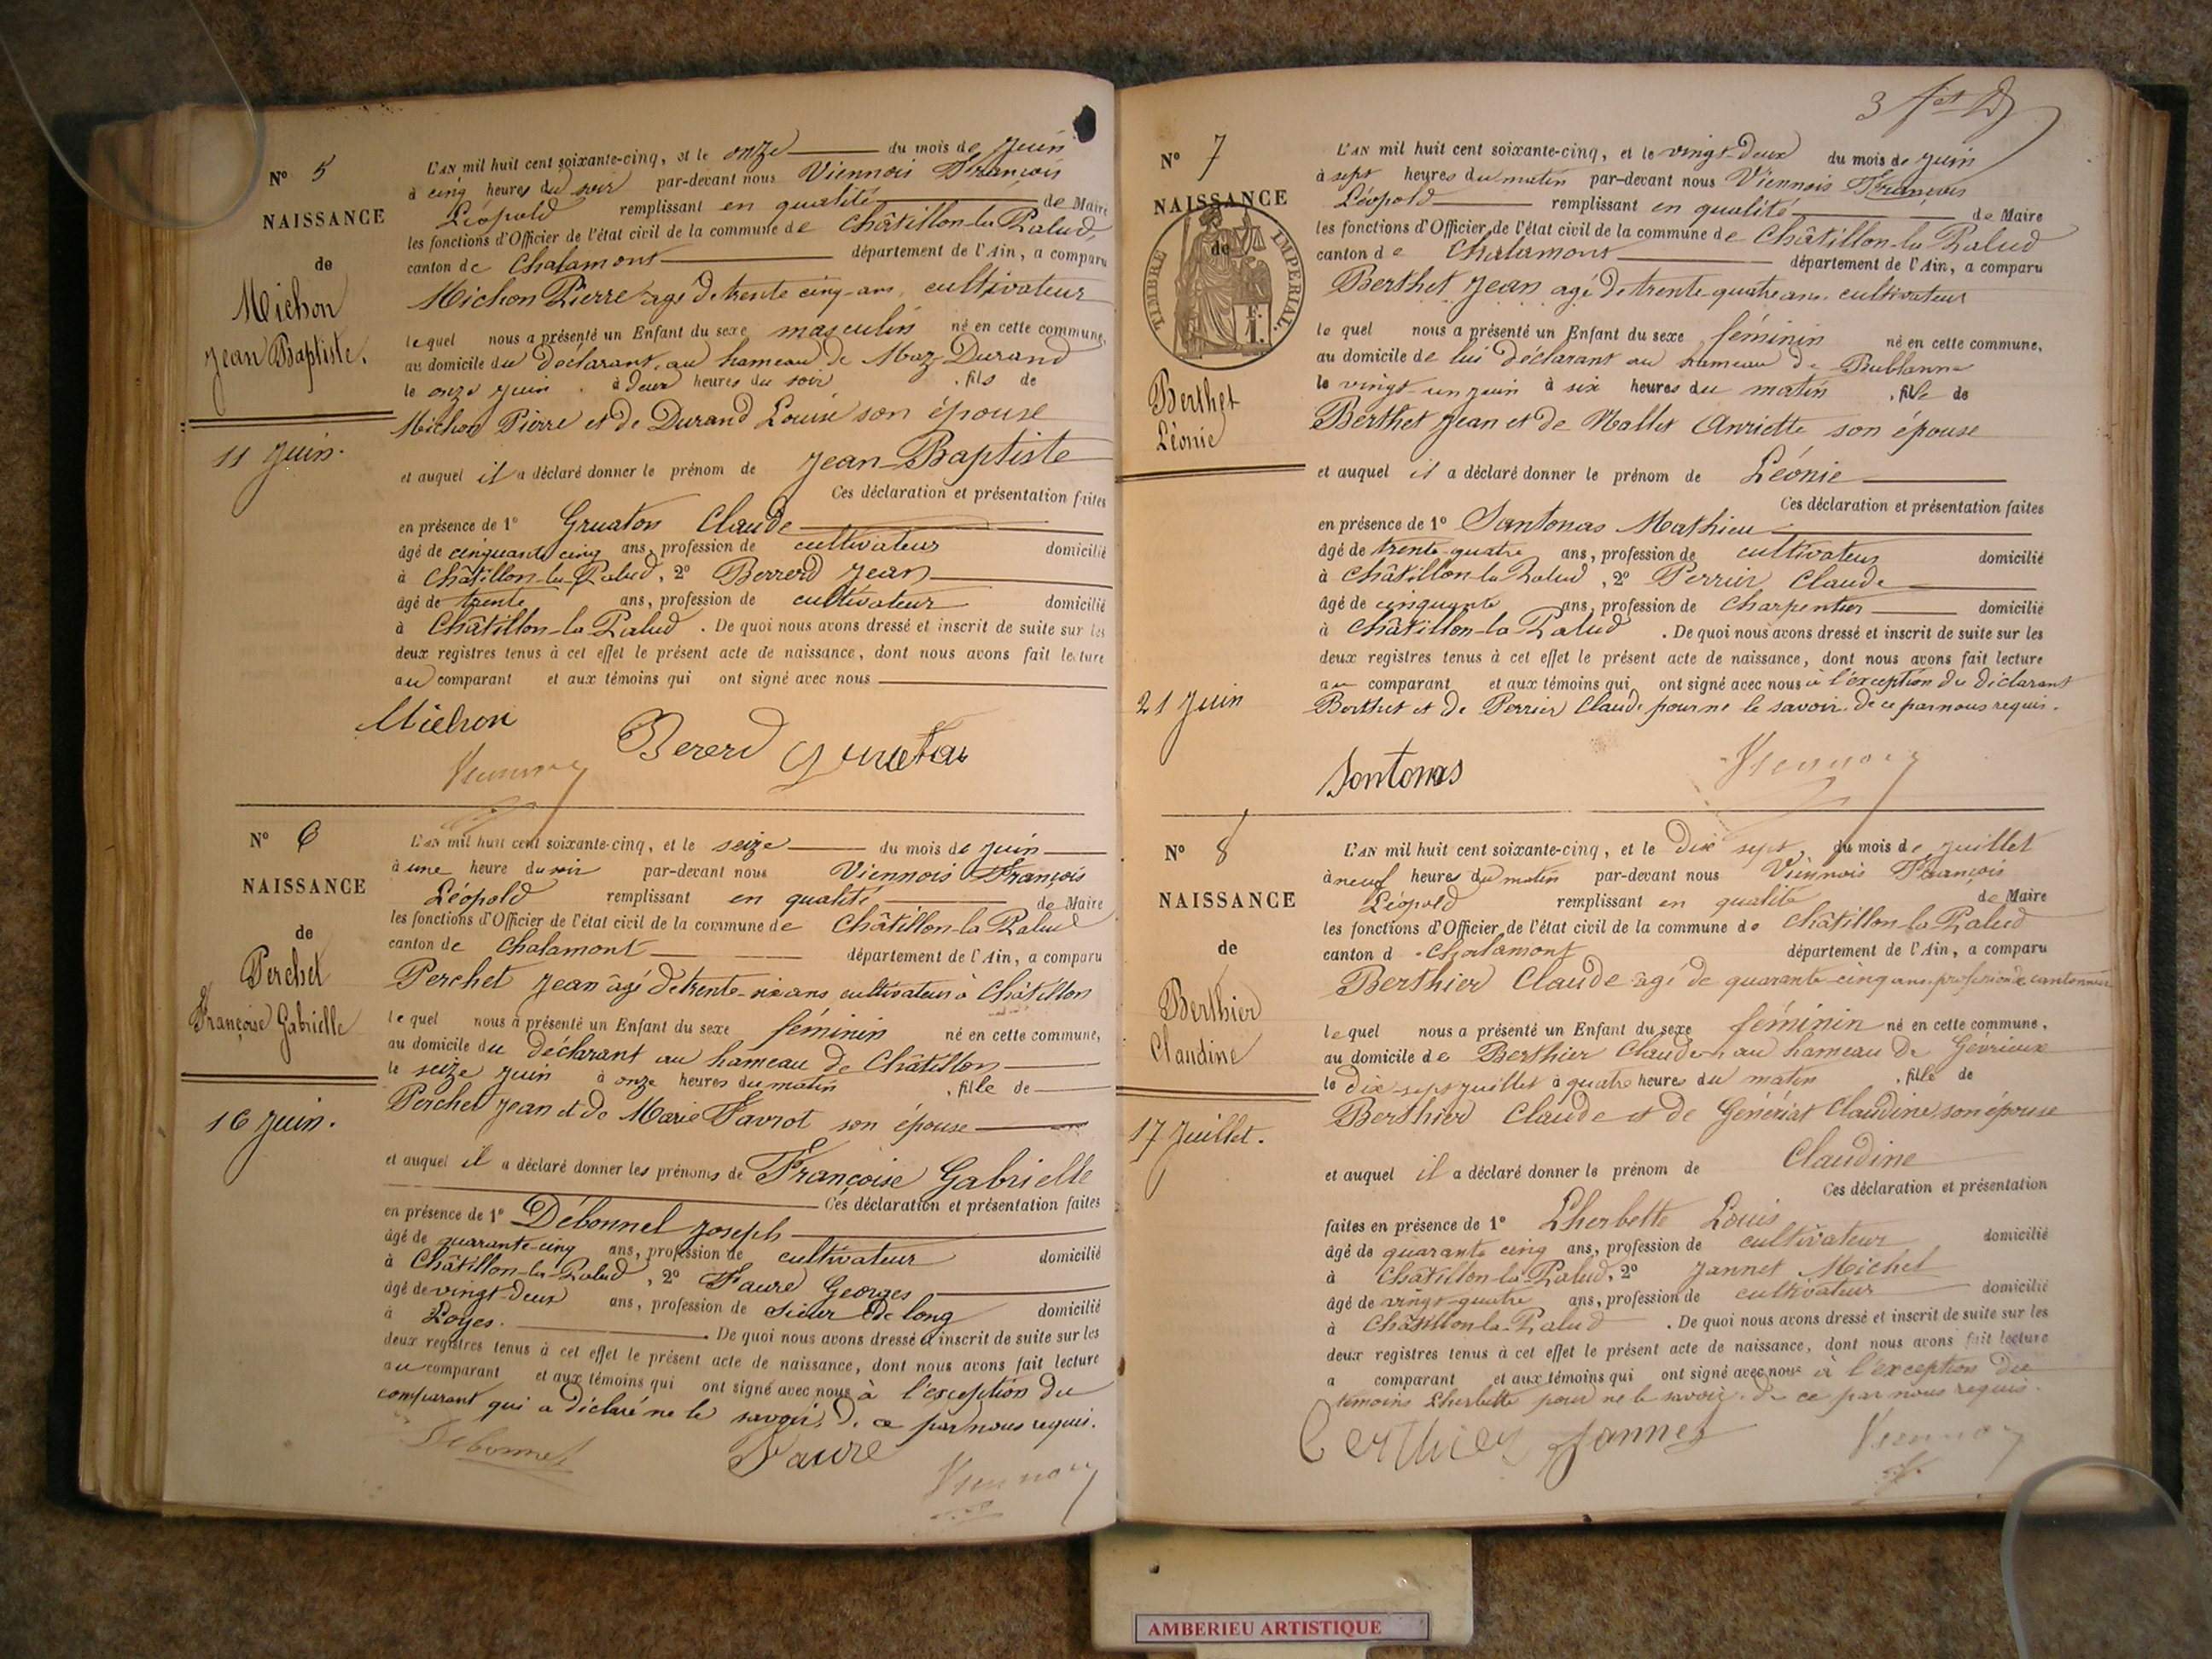 N° 5
NAISSANCE
de
Michon
Jean Baptiste.
11 Juin.
L'AN mil huit cent soixante-cinq, et le onze du mois de Juin
à cinq heures du soir par-devant nous Viennois François
Léopold remplissant en qualité de Maire
les fonctions d'Officier de l'état civil de la commune de Châtillon-la-Palud,
canton de Chalamont département de l'Ain, a comparu
Michon Pierre agé de trente cinq ans, cultivateur
lequel nous a présenté un Enfant du sexe masculin né en cette commune,
au domicile du déclarant, au hameau de Maz Durand
le onze Juin à deux heures du soir, fils de
Michon Pierre et de Durand Louise son épouse
et auquel il a déclaré donner le prénom de Jean-Baptiste
Ces déclaration et présentation faites
en présence de 1° Gruaton Claude
âgé de cinquante cinq ans, profession de cultivateur domicilié
à Châtillon-la-Palud, 2° Berrerd Jean
âgé de trente ans, profession de cultivateur domicilié
à Châtillon-la-Palud. De quoi nous avons dressé et inscrit de suite sur les
deux registres tenus à cet effet le présent acte de naissance, dont nous avons fait lecture
au comparant et aux témoins qui ont signé avec nous
Michon
Bererd
Viennois
N° 6
NAISSANCE
de
Perchet
Françoise Gabrielle
16 Juin.
L'AN mil huit cent soixante-cinq, et le seize du mois de Juin
à une heure du soir par-devant nous Viennois François
Léopold remplissant en qualité de Maire
les fonctions d'Officier de l'état civil de la commune de Châtillon-la-Palud
canton de Chalamont département de l'Ain, a comparu
Perchet Jean âgé de trente-six ans cultivateur à Châtillon
lequel nous a présenté un Enfant du sexe féminin né en cette commune,
au domicile du déclarant au hameau de Châtillon
le seize Juin à onze heures du matin, fille de
Perchet Jean et de Marie Favrot son épouse
et auquel il a déclaré donner les prénoms de Françoise Gabrielle
Ces déclaration et présentation faites
en présence de 1° Débonnel Joseph
âgé de quarante-cinq ans, profession de cultivateur domicilié
à Châtillon-la-Palud, 2° Faure Georges
âgé de vingt-deux ans, profession de scieur de long domicilié
à Loyes. De quoi nous avons dressé et inscrit de suite sur les
deux registres tenus à cet effet le présent acte de naissance, dont nous avons fait lecture
au comparant et aux témoins qui ont signé avec nous à l'exception du
comparant qui a déclaré ne le savoir, de ce par nous requis.
Debonnel
Faure
Viennois
3
N° 7
NAISSANCE
de
TIMBRE IMPERIAL.
F.
1.
Berthet
Léonie
21 Juin
L'AN mil huit cent soixante-cinq, et le vingt-deux du mois de Juin
à sept heures du matin par-devant nous Viennois François
Léopold remplissant en qualité de Maire
les fonctions d'Officier de l'état civil de la commune de Châtillon-la-Palud
canton de Chalamont département de l'Ain, a comparu
Berthet Jean agé de trente-quatre ans, cultivateur
lequel nous a présenté un Enfant du sexe féminin né en cette commune,
au domicile de lui déclarant au hameau de Bublanne
le vingt-un Juin à six heures du matin, fille de
Berthet Jean et de Mallet Anriette son épouse
et auquel il a déclaré donner le prénom de Léonie
Ces déclaration et présentation faites
en présence de 1° Santonas Mathieu
âgé de trente-quatre ans, profession de cultivateur domicilié
à Châtillon-la-Palud, 2° Perrier Claude
âgé de cinquante ans, profession de Charpentier domicilié
à Châtillon-la-Palud. De quoi nous avons dressé et inscrit de suite sur les
deux registres tenus à cet effet le présent acte de naissance, dont nous avons fait lecture
au comparant et aux témoins qui ont signé avec nous à l'exception du déclarant
Berthet et de Perrier Claude pour ne le savoir de ce par nous requis.
Santonas
Viennois
N° 8
NAISSANCE
de
Berthier
Claudine
17 Juillet.
L'AN mil huit cent soixante-cinq, et le dix sept du mois de Juillet
à neuf heures du matin par-devant nous Viennois François
Léopold remplissant en qualité de Maire
les fonctions d'Officier de l'état civil de la commune de Châtillon-la-Palud
canton d Chalamont département de l'Ain, a comparu
Berthier Claude agé de quarante-cinq ans, profession de cantonnier
lequel nous a présenté un Enfant du sexe féminin né en cette commune,
au domicile de Berthier Claude au hameau de Gévrieux
le dix-sept Juillet à quatre heures du matin, fille de
Berthier Claude et de Genériat Claudine, son épouse
et auquel il a déclaré donner le prénom de Claudine
Ces déclaration et présentation
faites en présence de 1° Lherbette Louis
âgé de quarante cinq ans, profession de cultivateur domicilié
à Châtillon-la-Palud, 2° Jannet Michel
âgé de vingt-quatre ans, profession de cultivateur domicilié
à Châtillon-la-Palud. De quoi nous avons dressé et inscrit de suite sur les
deux registres tenus à cet effet le présent acte de naissance, dont nous avons fait lecture
a comparant et aux témoins qui ont signé avec nous à l'exception du
témoins Lherbette pour ne le savoir de ce par nous requis.
Berthier Jannet
Viennois
AMBERIEU ARTISTIQUE